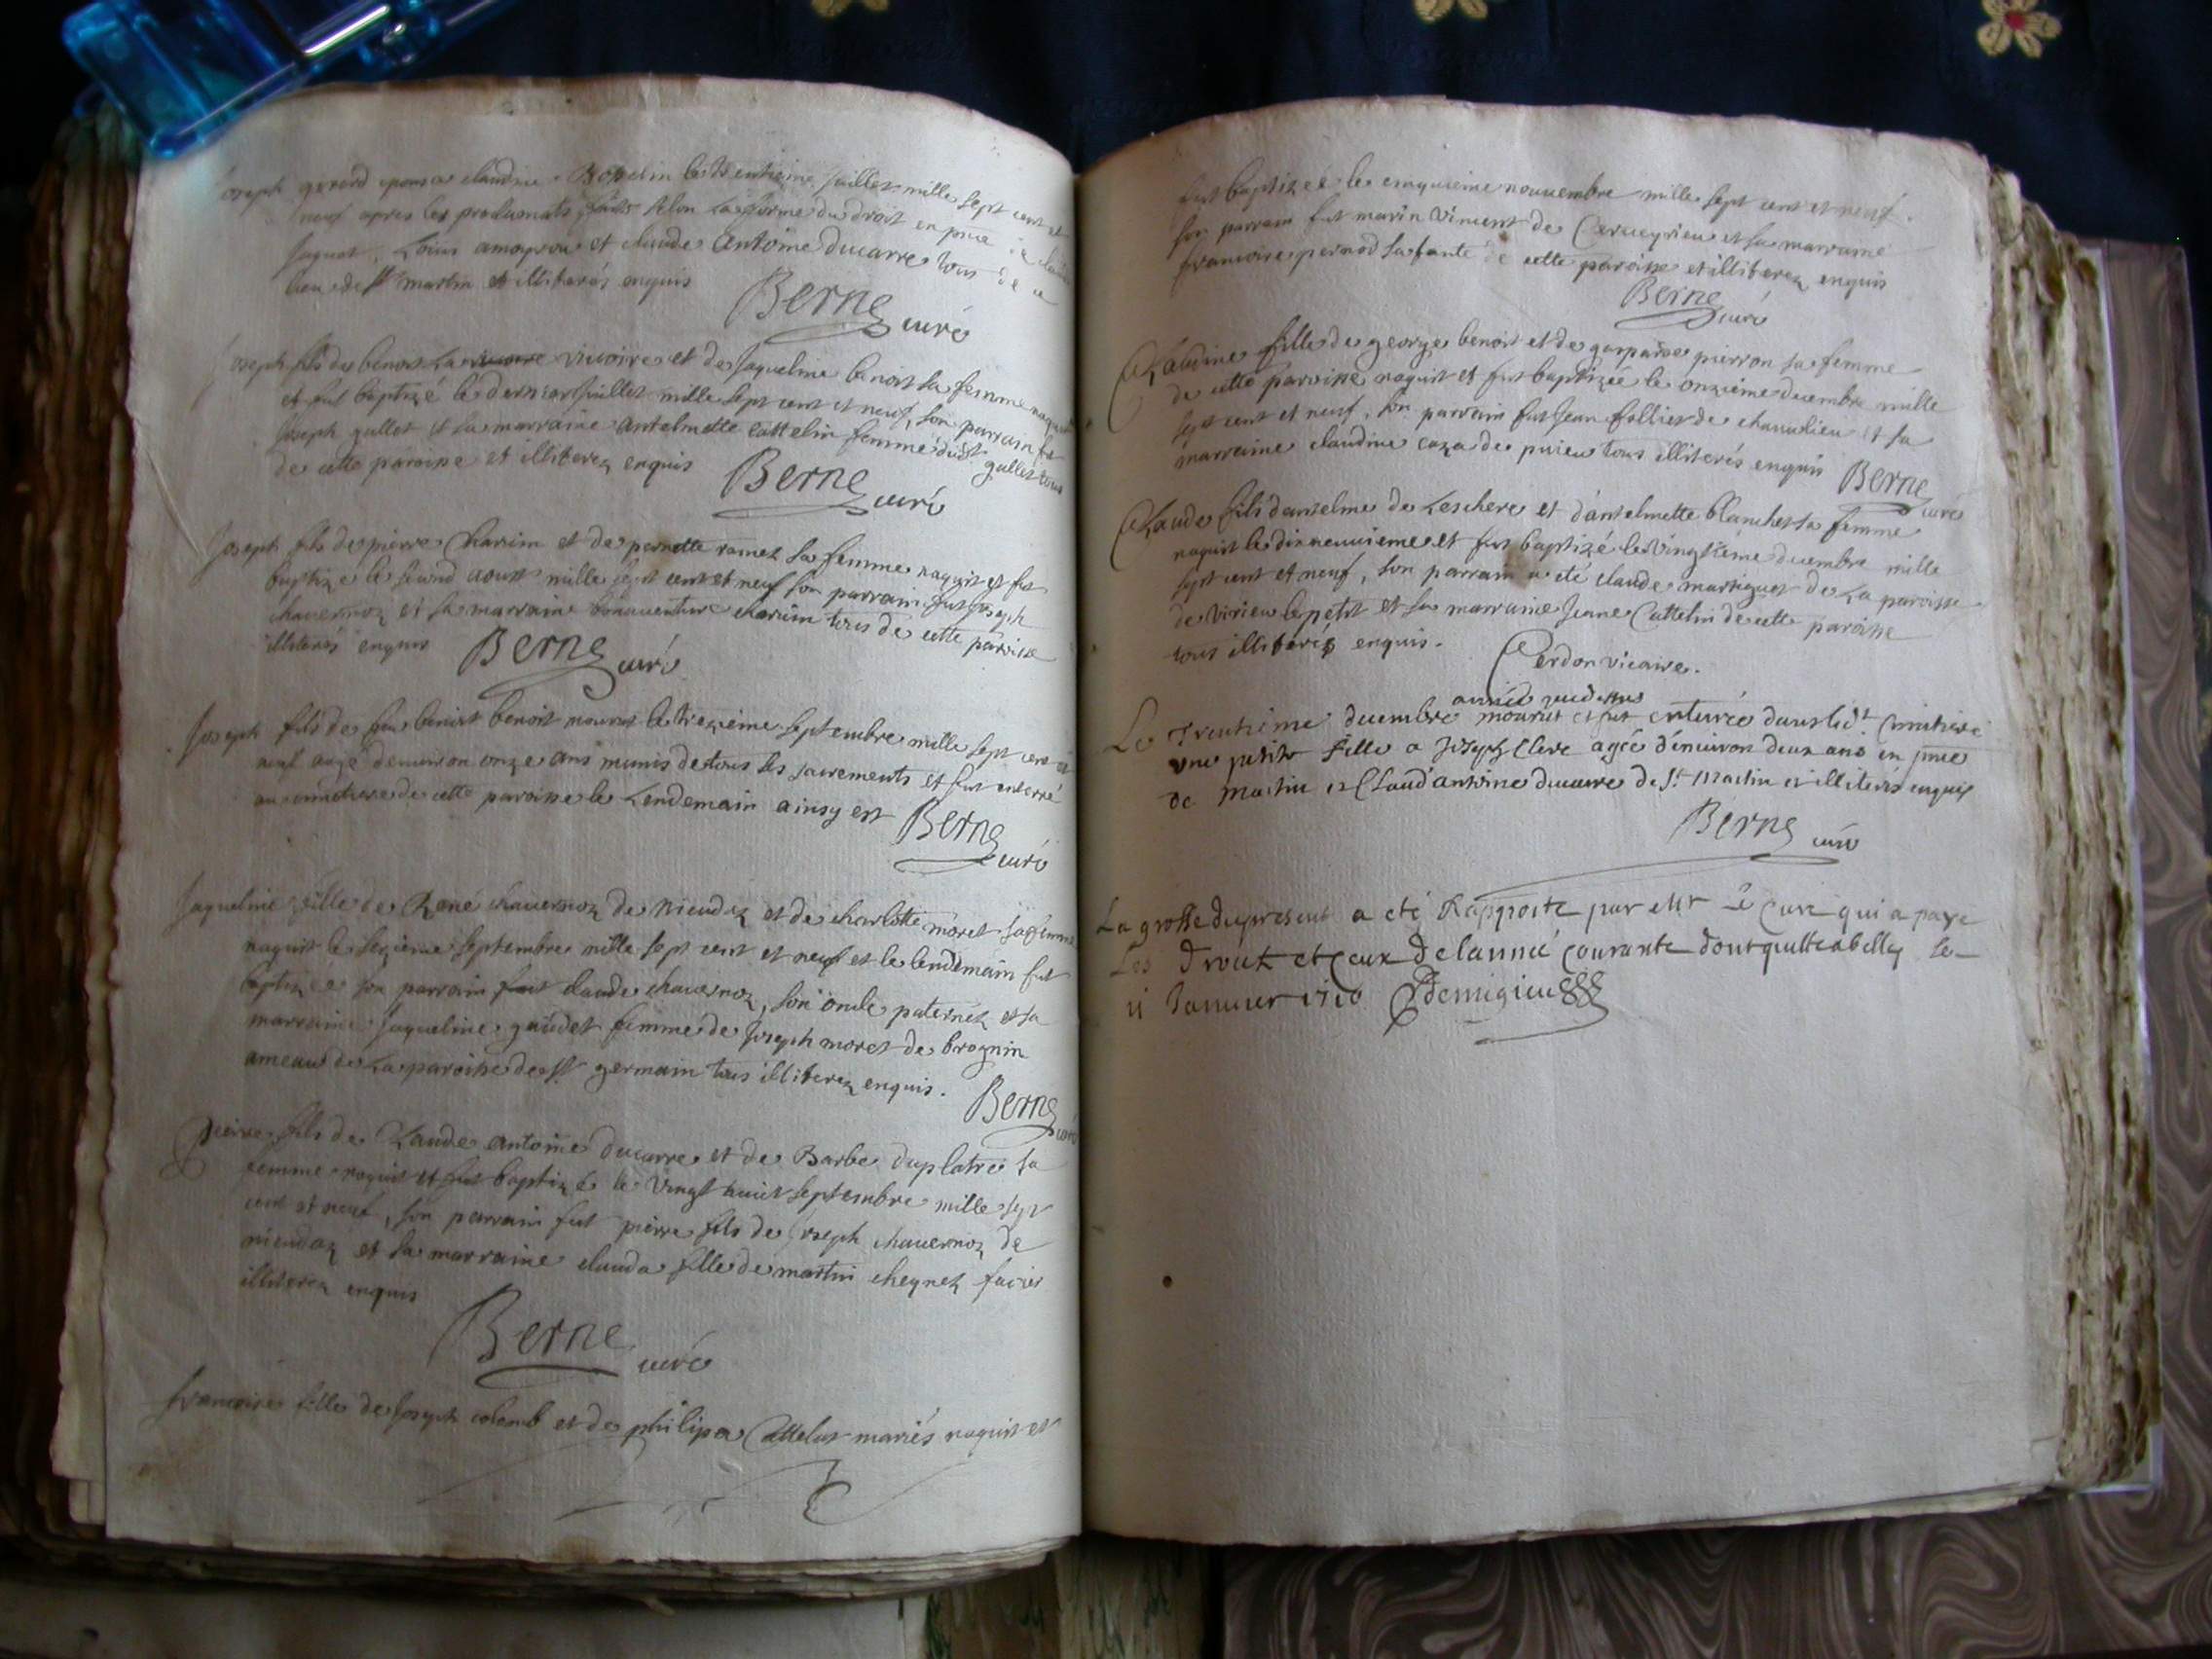 Joseph gerord epousa claudine Bottelin le trentieme Juillet mille sept cent et
neuf apres les proclamats faits selon la forme du droit en pnce de claude
Jaquet, Loüis amoproux et claude Antoine ducarre tous de ce
lieu de st martin et illiterés enquis
Berne curé
Joseph fils de benoit La vivoire et de Jaqueline benoit sa femme naquit
et fut baptizé le dernier Juillet mille sept cent et neuf, son parrain fut
Joseph gullet et sa marraine antelmette cattelin femme dudt gullet tous
de cette paroisse et illiterez enquis
Berne curé
Joseph fils de pierre Charim et de pernette ramet sa femme naquit et fut
baptizé le second aoust mille sept cent et neuf son parrain fut Joseph
chavernoz et sa marraine bonaventure charim tous de cette paroisse
illiterés enquis
Berne curé
Joseph fils de feu benoit benoit mourut le treizieme septembre mille sept cent et
neuf aagé denviron onze ans munis de tous les sacrements et fut enterré
au cimetiere de cette paroisse le Lendemain ainsy est
Berne curé
Jaqueline fille de René chavernoz de nieudaz et de charlotte moret sa femme
naquit le sezieme septembre mille sept cent et neuf et le lendemain fut
baptizée son parrain fut claude chavernoz, son oncle paternel et sa
marraine Jaqueline gaudet femme de Joseph moret de brognin
ameau de La paroisse de st germain tous illiterez enquis.
Berne curé
Pierre fils de Claude antoine ducarre et de Barbe duplatre sa
femme naquit et fut baptizé le vingt huict septembre mille sept
cent et neuf, son parrain fut pierre fils de Joseph chavernoz de
nieudaz et sa marraine clauda fille de martin cheynet
illiterez enquis
Berne curé
francoise fille de Joseph colomb et de philipa Cattelat mariés naquit et
fut baptizée le cinquieme nouuembre mille sept cent et neuf.
son parrain fut marin Vincent de Cerveyrieu et sa marraine
francoise pernod sa tante de cette paroisse et illiterez enquis
Berne curé
Claudine fille de george benoit et de gasparde pierron sa femme
de cette paroisse naquit et fut baptizée le onzieme decembre mille
sept cent et neuf, son parrain fut Jean follier de chavalieu et sa
marraine claudine caza de puieu tous illiterés enquis Berne curé
Claude fils dantelme de Leschere et d'antelmette blanchet sa femme
naquit le dixneuuieme et fut baptizé le vingtieme decembre mille
sept cent et neuf, son parrain a eté claude martignet de La paroisse
de virieu le petit et sa marraine Jeane Cattelin de cette paroisse
tous illiterés enquis.
Cerdon vicaire.
année que dessus
Le Trentieme decembre mourut et fut enterrée dans led.t Cimitiere
une petite fille a Joseph Clerc agée d'enuiron deux ans en pnce
de Martin et Claud'antoine ducarre de St. Martin et illiterés enquis
Berne curé
La grosse du present a eté Rapporté par Mr Le Curé qui a payé
Les Droitz et Ceux de lannée Courante dont quitte a belley le
11 Januier 1710 Demigieu